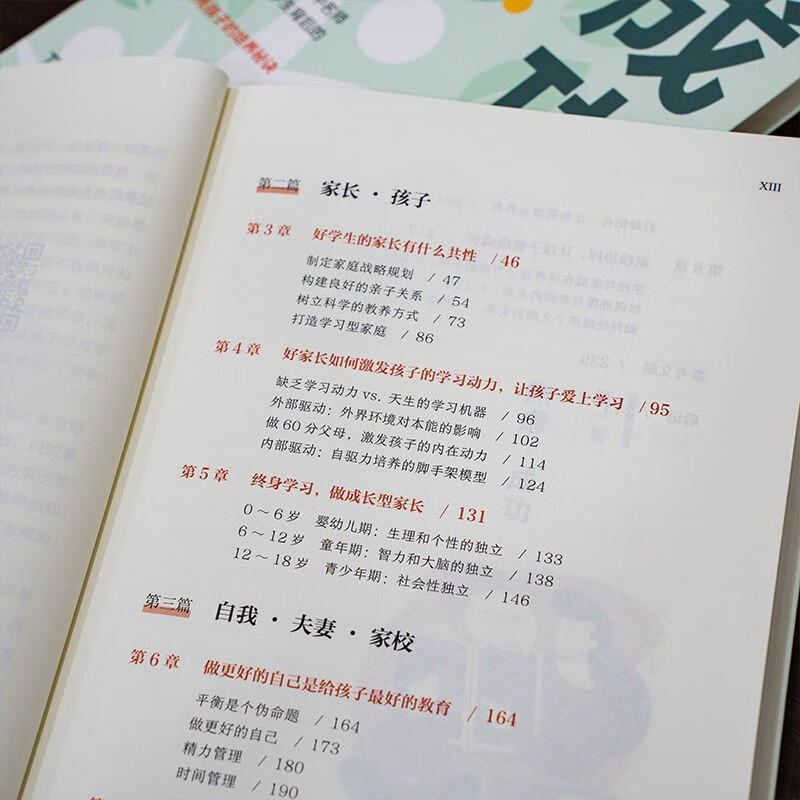 成
XIII
第二篇 家长·孩子
第3章 好学生的家长有什么共性 /46
制定家庭战略规划 /47
构建良好的亲子关系 /54
树立科学的教养方式 /73
打造学习型家庭 /86
第4章 好家长如何激发孩子的学习动力，让孩子爱上学习 /95
缺乏学习动力 vs. 天生的学习机器 /96
外部驱动：外界环境对本能的影响 /102
做60分父母，激发孩子的内在动力 /114
内部驱动：自驱力培养的脚手架模型 /124
第5章 终身学习，做成长型家长 /131
0～6岁 婴幼儿期：生理和个性的独立 /133
6～12岁 童年期：智力和大脑的独立 /138
12～18岁 青少年期：社会性独立 /146
第三篇 自我·夫妻·家校
第6章 做更好的自己是给孩子最好的教育 /164
平衡是个伪命题 /164
做更好的自己 /173
精力管理 /180
时间管理 /190